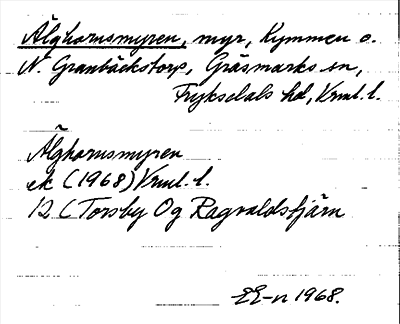 Älghornsmyren, myr, Kymmen o.
N. Granbäckstorp, Gräsmarks sn,
Fryksdals hd, Vrml. l.
Älghornsmyren
ek (1968) Vrml. l.
12 C Torsby Og Ragvaldstjärn
EE-n 1968.